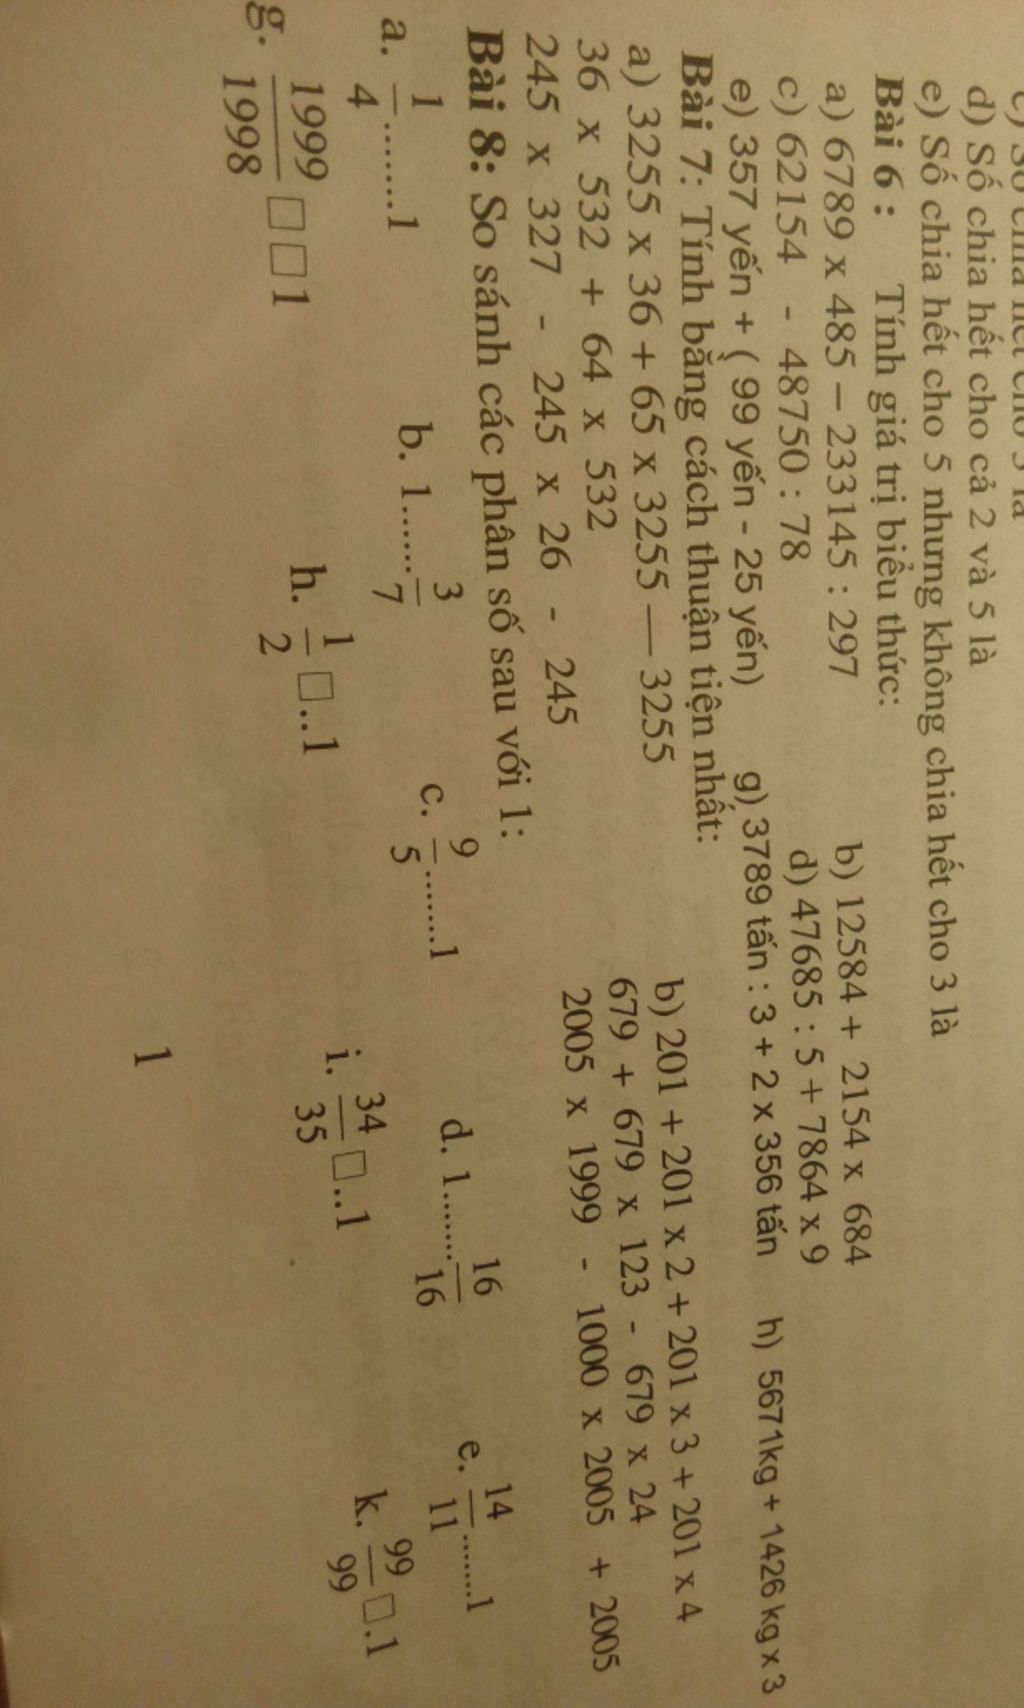 d) Số chia hết cho cả 2 và 5 là
e) Số chia hết cho 5 nhưng không chia hết cho 3 là
Bài 6 : Tính giá trị biểu thức:
a) 6789 x 485 – 233145 : 297 b) 12584 + 2154 x 684
c) 62154 - 48750 : 78 d) 47685 : 5 + 7864 x 9
e) 357 yến + ( 99 yến - 25 yến) g) 3789 tấn : 3 + 2 x 356 tấn h) 5671kg + 1426 kg x 3
Bài 7: Tính bằng cách thuận tiện nhất:
a) 3255 x 36 + 65 x 3255 — 3255 b) 201 + 201 x 2 + 201 x 3 + 201 x 4
36 x 532 + 64 x 532 679 + 679 x 123 - 679 x 24
245 x 327 - 245 x 26 - 245 2005 x 1999 - 1000 x 2005 + 2005
Bài 8: So sánh các phân số sau với 1:
a. 1/4 ........1 b. 1...... 3/7 c. 9/5 ........1 d. 1........ 16/16 e. 14/11 .......1
g. 1999/1998 □ □ 1 h. 1/2 □..1 i. 34/35 □..1 k. 99/99 □.1
1